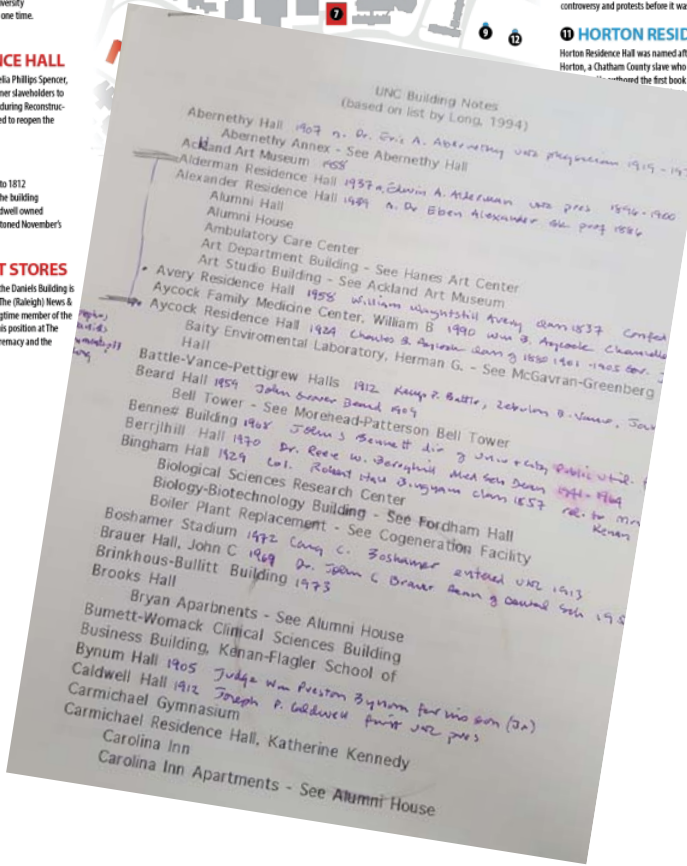 one time.
NCE HALL
elia Phillips Spencer,
ner slaveholders to
during Reconstruc-
ed to reopen the
to 1812
he building
dwell owned
toned November's
T STORES
the Daniels Building is
The (Raleigh) News &
gtime member of the
is position at The
remacy and the
7
9
12
controversy and protests before it was
11 HORTON RESID
Horton Residence Hall was named aft
Horton, a Chatham County slave who
authored the first book
UNC Building Notes
(based on list by Long, 1994)
Abernethy Hall 1907 n. Dr. Eric A. Abernethy UNC physician 1919 - 19
Abernethy Annex - See Abernethy Hall
Ackland Art Museum 1958
Alderman Residence Hall 1937 n. Edwin A. Alderman UNC pres 1896 - 1900
Alexander Residence Hall 1939 n. Dr Eben Alexander Gk. prof 1886
Alumni Hall
Alumni House
Ambulatory Care Center
Art Department Building - See Hanes Art Center
Art Studio Building - See Ackland Art Museum
Avery Residence Hall 1958 William Waightstill Avery class 1837 Confed
Aycock Family Medicine Center, William B 1990 Wm B. Aycock Chancello
Aycock Residence Hall 1924 Charles B Aycock class of 1880 1901 - 1905 Gov.
Baity Enviromental Laboratory, Herman G. - See McGavran-Greenberg
Hall
Battle-Vance-Pettigrew Halls 1912 Kemp P. Battle, Zebulon B. Vance,
Beard Hall 1959 John Grover Beard 1909
Bell Tower - See Morehead-Patterson Bell Tower
Benne# Building 1908 John S Bennett dir of Univ + City Public Util.
Berrjlhill Hall 1970 Dr. Reece W. Berryhill Med Sch Dean 1941 - 1964
Bingham Hall 1929 Col. Robert Hall Bingham class 1857 rel. to
Kenan
Biological Sciences Research Center
Biology-Biotechnology Building - See Fordham Hall
Boiler Plant Replacement - See Cogeneration Facility
Boshamer Stadium 1972 Cary C. Boshamer entered UNC 1913
Brauer Hall, John C 1969 Dr. John C Brauer Dean of Dental Sch 195
Brinkhous-Bullitt Building 1973
Brooks Hall
Bryan Aparbnents - See Alumni House
Bumett-Womack Clinical Sciences Building
Business Building, Kenan-Flagler School of
Bynum Hall 1905 Judge Wm Preston Bynum for his son (Jr)
Caldwell Hall 1912 Joseph P. Caldwell first UNC pres
Carmichael Gymnasium
Carmichael Residence Hall, Katherine Kennedy
Carolina Inn
Carolina Inn Apartments - See Alumni House